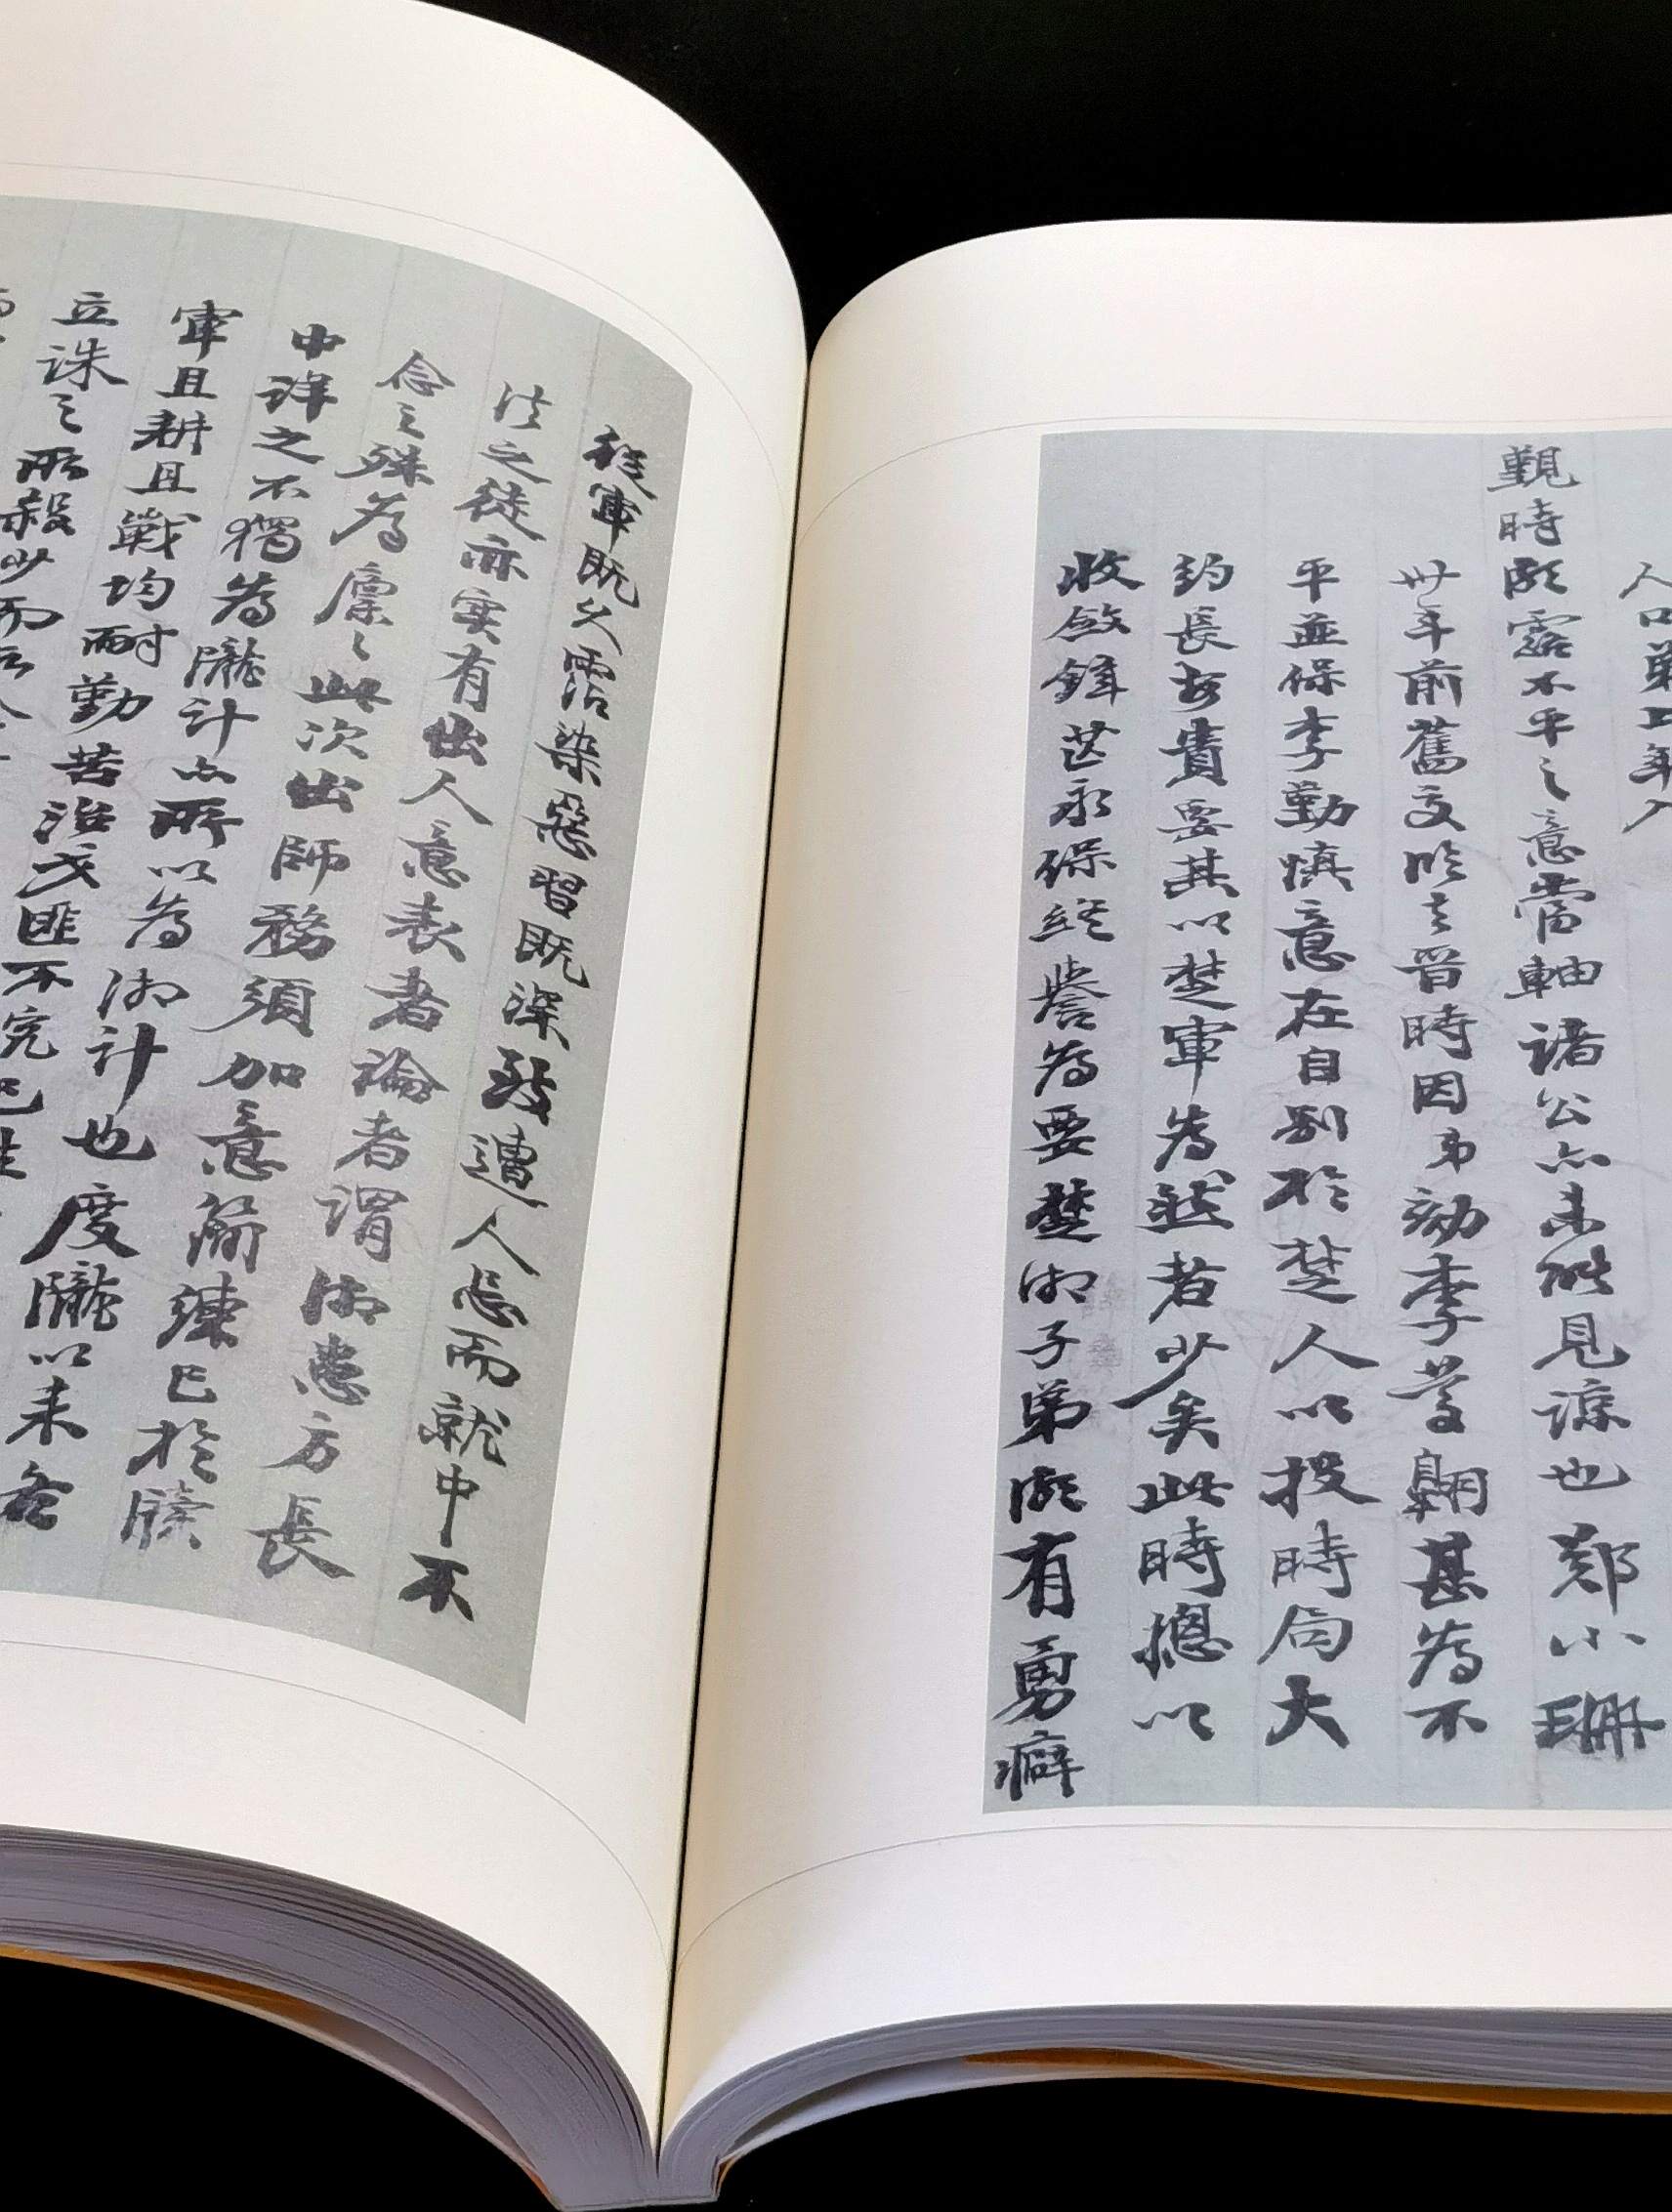 人口第工年入
觐時頗露不平之意當軸諸公亦未能見諒也鄭小珊
卅年前舊交臨去晉時因弟劾李蒼翺甚為不
平並保李勤慎意在自别於楚人以投時局大
約長安貴要其以楚軍為然者少矣此時總以
收斂鋒芒永保終譽為要楚湘子弟頗有勇癖
從軍既久霑染惡習既深致遭人忌而就中不
法之徒亦实有出人意表者論者謂湘患方長
念之殊為懔之此次出師務須加意簡練已於牘
中詳之不獨為隴計亦所以為湘計也度隴以来各
軍且耕且戰均耐勤苦治戎匪不究
立誅之所殺少而